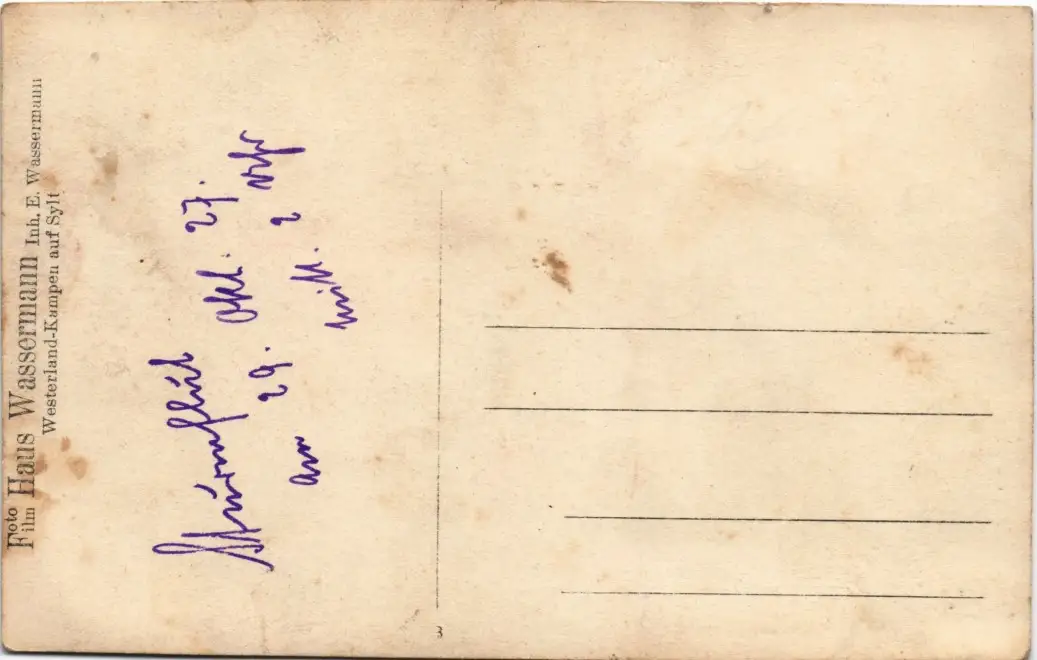 Foto
Film Haus Wassermann Inh. E. Wassermann
Westerland-Kampen auf Sylt
Sturmflut
Okt. 27.
am 29. 2 Uhr
mitt.
3